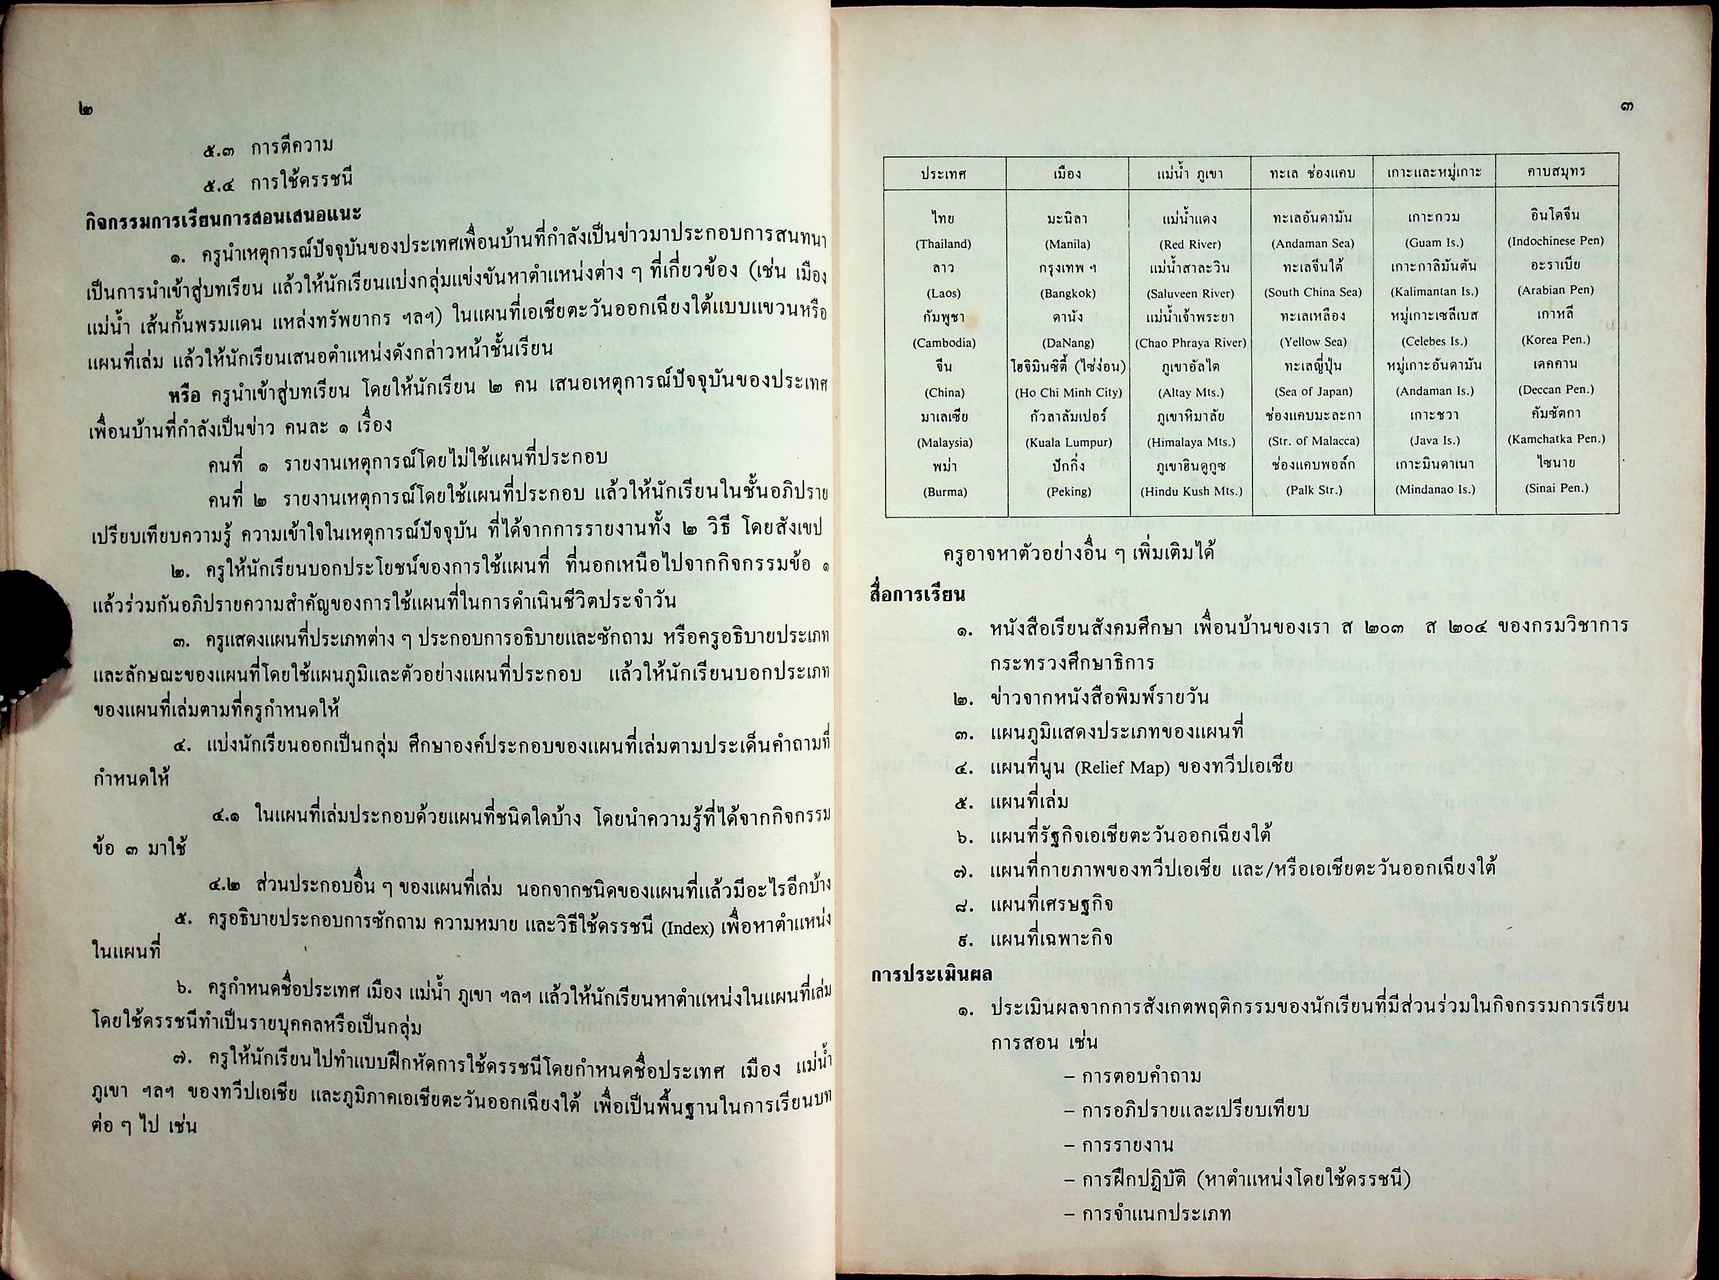 ๒
๕.๓ การตีความ
๕.๔ การใช้ดรรชนี
กิจกรรมการเรียนการสอนเสนอแนะ
๑. ครูนำเหตุการณ์ปัจจุบันของประเทศเพื่อนบ้านที่กำลังเป็นข่าวมาประกอบการสนทนา
เป็นการนำเข้าสู่บทเรียน แล้วให้นักเรียนแบ่งกลุ่มแข่งขันหาตำแหน่งต่าง ๆ ที่เกี่ยวข้อง (เช่น เมือง
แม่น้ำ เส้นกั้นพรมแดน แหล่งทรัพยากร ฯลฯ) ในแผนที่เอเชียตะวันออกเฉียงใต้แบบแขวนหรือ
แผนที่เล่ม แล้วให้นักเรียนเสนอตำแหน่งดังกล่าวหน้าชั้นเรียน
หรือ ครูนำเข้าสู่บทเรียน โดยให้นักเรียน ๒ คน เสนอเหตุการณ์ปัจจุบันของประเทศ
เพื่อนบ้านที่กำลังเป็นข่าว คนละ ๑ เรื่อง
คนที่ ๑ รายงานเหตุการณ์โดยไม่ใช้แผนที่ประกอบ
คนที่ ๒ รายงานเหตุการณ์โดยใช้แผนที่ประกอบ แล้วให้นักเรียนในชั้นอภิปราย
เปรียบเทียบความรู้ ความเข้าใจในเหตุการณ์ปัจจุบัน ที่ได้จากการรายงานทั้ง ๒ วิธี โดยสังเขป
๒. ครูให้นักเรียนบอกประโยชน์ของการใช้แผนที่ ที่นอกเหนือไปจากกิจกรรมข้อ ๑
แล้วร่วมกันอภิปรายความสำคัญของการใช้แผนที่ในการดำเนินชีวิตประจำวัน
๓. ครูแสดงแผนที่ประเภทต่าง ๆ ประกอบการอธิบายและซักถาม หรือครูอธิบายประเภท
และลักษณะของแผนที่โดยใช้แผนภูมิและตัวอย่างแผนที่ประกอบ แล้วให้นักเรียนบอกประเภท
ของแผนที่เล่มตามที่ครูกำหนดให้
๔. แบ่งนักเรียนออกเป็นกลุ่ม ศึกษาองค์ประกอบของแผนที่เล่มตามประเด็นคำถามที่
กำหนดให้
๔.๑ ในแผนที่เล่มประกอบด้วยแผนที่ชนิดใดบ้าง โดยนำความรู้ที่ได้จากกิจกรรม
ข้อ ๓ มาใช้
๔.๒ ส่วนประกอบอื่น ๆ ของแผนที่เล่ม นอกจากชนิดของแผนที่แล้วมีอะไรอีกบ้าง
๕. ครูอธิบายประกอบการซักถาม ความหมาย และวิธีใช้ดรรชนี (Index) เพื่อหาตำแหน่ง
ในแผนที่
๖. ครูกำหนดชื่อประเทศ เมือง แม่น้ำ ภูเขา ฯลฯ แล้วให้นักเรียนหาตำแหน่งในแผนที่เล่ม
โดยใช้ดรรชนีทำเป็นรายบุคคลหรือเป็นกลุ่ม
๗. ครูให้นักเรียนไปทำแบบฝึกหัดการใช้ดรรชนีโดยกำหนดชื่อประเทศ เมือง แม่น้ำ
ภูเขา ฯลฯ ของทวีปเอเชีย และภูมิภาคเอเชียตะวันออกเฉียงใต้ เพื่อเป็นพื้นฐานในการเรียนบท
ต่อ ๆ ไป เช่น
๓
ประเทศ เมือง แม่น้ำ ภูเขา ทะเล ช่องแคบ เกาะและหมู่เกาะ คาบสมุทร
ไทย มะนิลา แม่น้ำแดง ทะเลอันดามัน เกาะกวม อินโดจีน
(Thailand) (Manila) (Red River) (Andaman Sea) (Guam Is.) (Indochinese Pen)
ลาว กรุงเทพ ฯ แม่น้ำสาละวิน ทะเลจีนใต้ เกาะกาลิมันตัน อะราเบีย
(Laos) (Bangkok) (Saluveen River) (South China Sea) (Kalimantan Is.) (Arabian Pen)
กัมพูชา ดานัง แม่น้ำเจ้าพระยา ทะเลเหลือง หมู่เกาะเซลีเบส เกาหลี
(Cambodia) (DaNang) (Chao Phraya River) (Yellow Sea) (Celebes Is.) (Korea Pen.)
จีน โฮจิมินซิตี้ (ไซ่ง่อน) ภูเขาอัลไต ทะเลญี่ปุ่น หมู่เกาะอันดามัน เดคคาน
(China) (Ho Chi Minh City) (Altay Mts.) (Sea of Japan) (Andaman Is.) (Deccan Pen.)
มาเลเซีย กัวลาลัมเปอร์ ภูเขาหิมาลัย ช่องแคบมะละกา เกาะชวา คัมชัตกา
(Malaysia) (Kuala Lumpur) (Himalaya Mts.) (Str. of Malacca) (Java Is.) (Kamchatka Pen.)
พม่า ปักกิ่ง ภูเขาฮินดูกูช ช่องแคบพอล์ก เกาะมินดาเนา ไซนาย
(Burma) (Peking) (Hindu Kush Mts.) (Palk Str.) (Mindanao Is.) (Sinai Pen.)
ครูอาจหาตัวอย่างอื่น ๆ เพิ่มเติมได้
สื่อการเรียน
๑. หนังสือเรียนสังคมศึกษา เพื่อนบ้านของเรา ส ๒๐๓ ส ๒๐๔ ของกรมวิชาการ
กระทรวงศึกษาธิการ
๒. ข่าวจากหนังสือพิมพ์รายวัน
๓. แผนภูมิแสดงประเภทของแผนที่
๔. แผนที่นูน (Relief Map) ของทวีปเอเชีย
๕. แผนที่เล่ม
๖. แผนที่รัฐกิจเอเชียตะวันออกเฉียงใต้
๗. แผนที่กายภาพของทวีปเอเชีย และ/หรือเอเชียตะวันออกเฉียงใต้
๘. แผนที่เศรษฐกิจ
๙. แผนที่เฉพาะกิจ
การประเมินผล
๑. ประเมินผลจากการสังเกตพฤติกรรมของนักเรียนที่มีส่วนร่วมในกิจกรรมการเรียน
การสอน เช่น
– การตอบคำถาม
– การอภิปรายและเปรียบเทียบ
– การรายงาน
– การฝึกปฏิบัติ (หาตำแหน่งโดยใช้ดรรชนี)
– การจำแนกประเภท